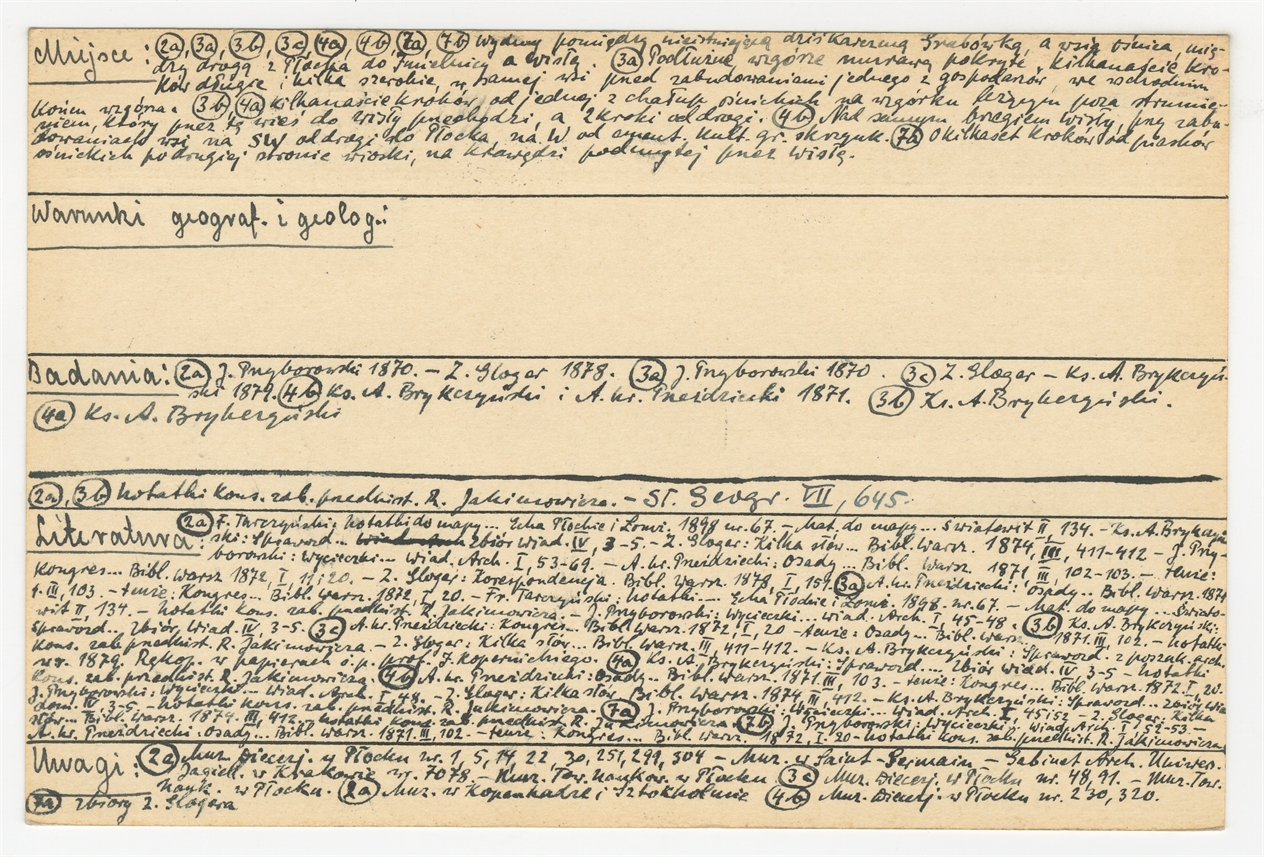 Miejsce: 2a, 3a, 3b, 3c, 4a, 4b, 7a, 7b Wydmy pomiędzy nieistniejącą dziś karczmą Grabówką, a wsią Ośnica, mię-
dzy drogą z Płocka do Imielnicy a Wisłą. 3a Podłużne wzgórze murawą pokryte, kilkanaście kro-
ków długie i kilka szerokie, w samej wsi przed zabudowaniami jednego z gospodarzy, we wschodnim
końcu wzgórza. 3b 4a Kilkanaście kroków od jednej z chałup ośnickich na wzgórku leżącym poza strumie-
niem, który przez tę wieś do Wisły przechodzi, a 2 kroki od drogi. 4b Nad samym brzegiem Wisły, przy zabu-
dowaniach wsi na SW od drogi do Płocka, na W od cment. kult. gr. skrzynk. 7a O kilkaset kroków od piasków
ośnickich po drugiej stronie wioski, na krawędzi podmytej przez Wisłę.
Warunki geograf. i geolog.:
Badania: 2a J. Przyborowski 1870. – Z. Gloger 1878. 3a J. Przyborowski 1870. 3c Z. Gloger – Ks. A. Brykczyń-
ski 1879. 4b Ks. A. Brykczyński i A. hr. Przeździecki 1871. 3b Ks. A. Brykczyński.
4a Ks. A. Brykczyński
2a, 3b Notatki kons. zab. przedhist. R. Jakimowicza. – Sł. Geogr. VII, 645.
Literatura: 2a F. Tarczyński: Notatki do mapy... Echa Płockie i Łomż. 1898 nr. 67. – Mat. do mapy... Światowit II, 134. – Ks. A. Brykczyń-
ski: Sprawozd... Zbiór wiad. IV, 3-5. – Z. Gloger: Kilka słów... Bibl. Warsz. 1874, III, 411-412 – J. Przy-
borowski: Wycieczki... Wiad. Arch. I, 53-69. – A. hr. Przeździecki: Osady... Bibl. Warsz. 1871 III, 102-103. – tenże:
Kongres... Bibl. Warsz 1872, I, 11; 20. – Z. Gloger: Korespondencja. Bibl. Warsz. 1878, I, 159. 3a A. hr. Przeździecki: Osady... Bibl. Warsz. 1871
t. III, 103. – tenże: Kongres... Bibl. Warsz. 1872 I, 20. – Fr. Tarczyński: Notatki... Echa Płockie i Łomż. 1898. nr. 67. – Mat. do mapy... Świato-
wit II, 134. – Notatki kons. zab. przedhist. R. Jakimowicza. – J. Przyborowski: Wycieczki... Wiad. Arch. I, 45-48. 3b Ks. A. Brykczyński:
Sprawozd... Zbiór. Wiad. IV, 3-5. 3c A. hr. Przeździecki: Kongres... Bibl. Warsz. 1872, I, 20 – tenże: Osady... Bibl. Warsz. 1871. III, 102. – Notatki
kons. zab. przedhist. R. Jakimowicza – Z. Gloger: Kilka słów... Bibl. Warsz. III, 411-412. – Ks. A. Brykczyński: Sprawozd. z poszuk. arch.
w r. 1879. Rękop. w papierach ś. p. prof. J. Kopernickiego. 4a Ks. A. Brykczyński: Sprawozd... Zbiór wiad. IV, 3-5 – Notatki
kons. zab. przedhist. R. Jakimowicza. 4b A. hr. Przeździecki: Osady... Bibl. Warsz. 1871 III, 103. – tenże: Kongres... Bibl. Warsz. 1872 I, 20.
J. Przyborowski: Wycieczki... Wiad. Arch. I, 48. – Z. Gloger: Kilka słów. Bibl. Warsz. 1874 III, 412. – Ks. A. Brykczyński: Sprawozd... Zbiór wia-
dom. IV, 3-5 – Notatki kons. zab. przedhist. R. Jakimowicza. 7a J. Przyborowski: Wycieczki... Wiad. Arch. I, 45; 52 – Z. Gloger: Kilka
słów... Bibl. Warsz. 1874. III, 412. – Notatki kons. zab. przedhist. R. Jakimowicza. 7b J. Przyborowski: Wycieczki. Wiad. Arch. I, 52-53. –
A. hr. Przeździecki: Osady... Bibl. Warsz. 1871. III, 102. – tenże: Kongres... Bibl. Warsz. 1872, I, 20 – Notatki kons. zab. przedhist. R. Jakimowicza
Uwagi: 2a Muz. Diecezj. w Płocku nr. 1, 5, 14, 22, 30, 251, 299, 304 – Muz. w Saint-Germain – Gabinet Arch. Uniwer.
Jagiell. w Krakowie nr. 7078. – Muz. Tow. Naukow. w Płocku 3c Muz. Diecezj. w Płocku nr. 48, 91. – Muz. Tow.
Nauk. w Płocku. 2a Muz. w Kopenhadze i Sztokholmie 4b Muz. Diecezj. w Płocku nr. 230, 320.
7a Zbiory Z. Glogera